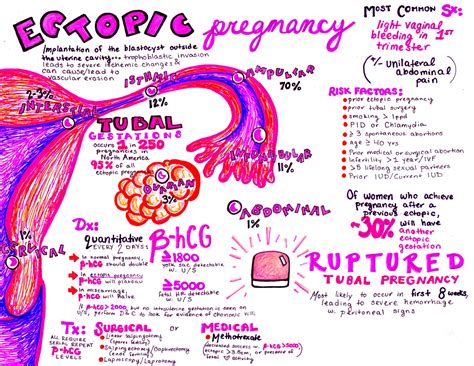 ECTOPIC pregnancy
Implantation of the blastocyst outside
the uterine cavity... trophoblastic invasion
leads to severe ischemic changes &
can cause/lead to
vascular erosion
ISTHMIC
12%
AMPULLAR
70%
2-3%
INTERSTITIAL
TUBAL
GESTATIONS
occurs 1 in 250
pregnancies in
North America
95% of all
ectopic
INFUNDIBULAR
11%
OVARIAN
3%
ABDOMINAL
CERVICAL
MOST COMMON Sx:
light vaginal
bleeding in 1ST
trimester
+/- unilateral
abdominal
pain
RISK FACTORS:
prior ectopic pregnancy
prior tubal surgery
smoking >1ppd
PID or Chlamydia
≥3 spontaneous abortions
age ≥40 yrs
Prior medical or surgical abortion
Infertility >1 year/IVF
>5 lifelong sexual partners
Prior IUD/Current IUD
Of women who
achieve pregnancy
after a
previous ectopic,
~30% will
have
another
ectopic
gestation
Dx:
quantitative
EVERY 2 DAYS!
β-hCG
In normal pregnancy,
β-hCG should double
In ectopic pregnancy
β-hCG will
In miscarriage,
β-hCG will halve
≥1800
yolk sac detectable
w. U/S
≥5000
fetal HR detectable
w. U/S
If β-hCG ≥2000, but no intrauterine gestation is seen on
U/S, perform D&C to look for evidence of chorionic villi
RUPTURED
TUBAL PREGNANCY
Most likely to occur in first 8 weeks,
leading to severe hemorrhage
w. peritoneal signs
Tx:
ALL REQUIRE
SERIAL REPEAT
β-hCG
LEVELS
SURGICAL
Linear salpingostomy
Salpingectomy/Oophorectomy
Laparoscopy/Laparotomy
or
MEDICAL
Methotrexate
decreased success w. β-hCG >5000
ectopic >3.5cm, or presence
of + cardiac activity